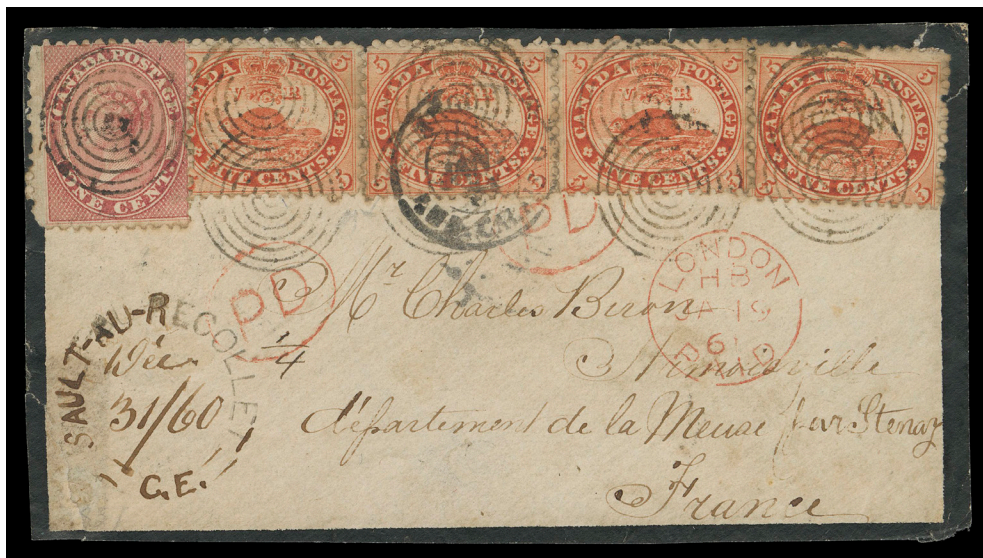 CANADA POSTAGE
ONE CENT
CANADA POSTAGE
5 5
V R
FIVE CENTS
5 5
CANADA POSTAGE
5 5
FIVE CENTS
5
CANADA POSTAGE
5 5
V R
FIVE CENTS
5
CANADA POSTAGE
5
FIVE CENTS
5 5
PD
PD
LONDON
HB
JA 19
61
PAID
SAULT-AU-RECOLLET
Déc
31/60
C.E.
1/4
Mr Charles Biron
département de la Meuse par Stenay
France